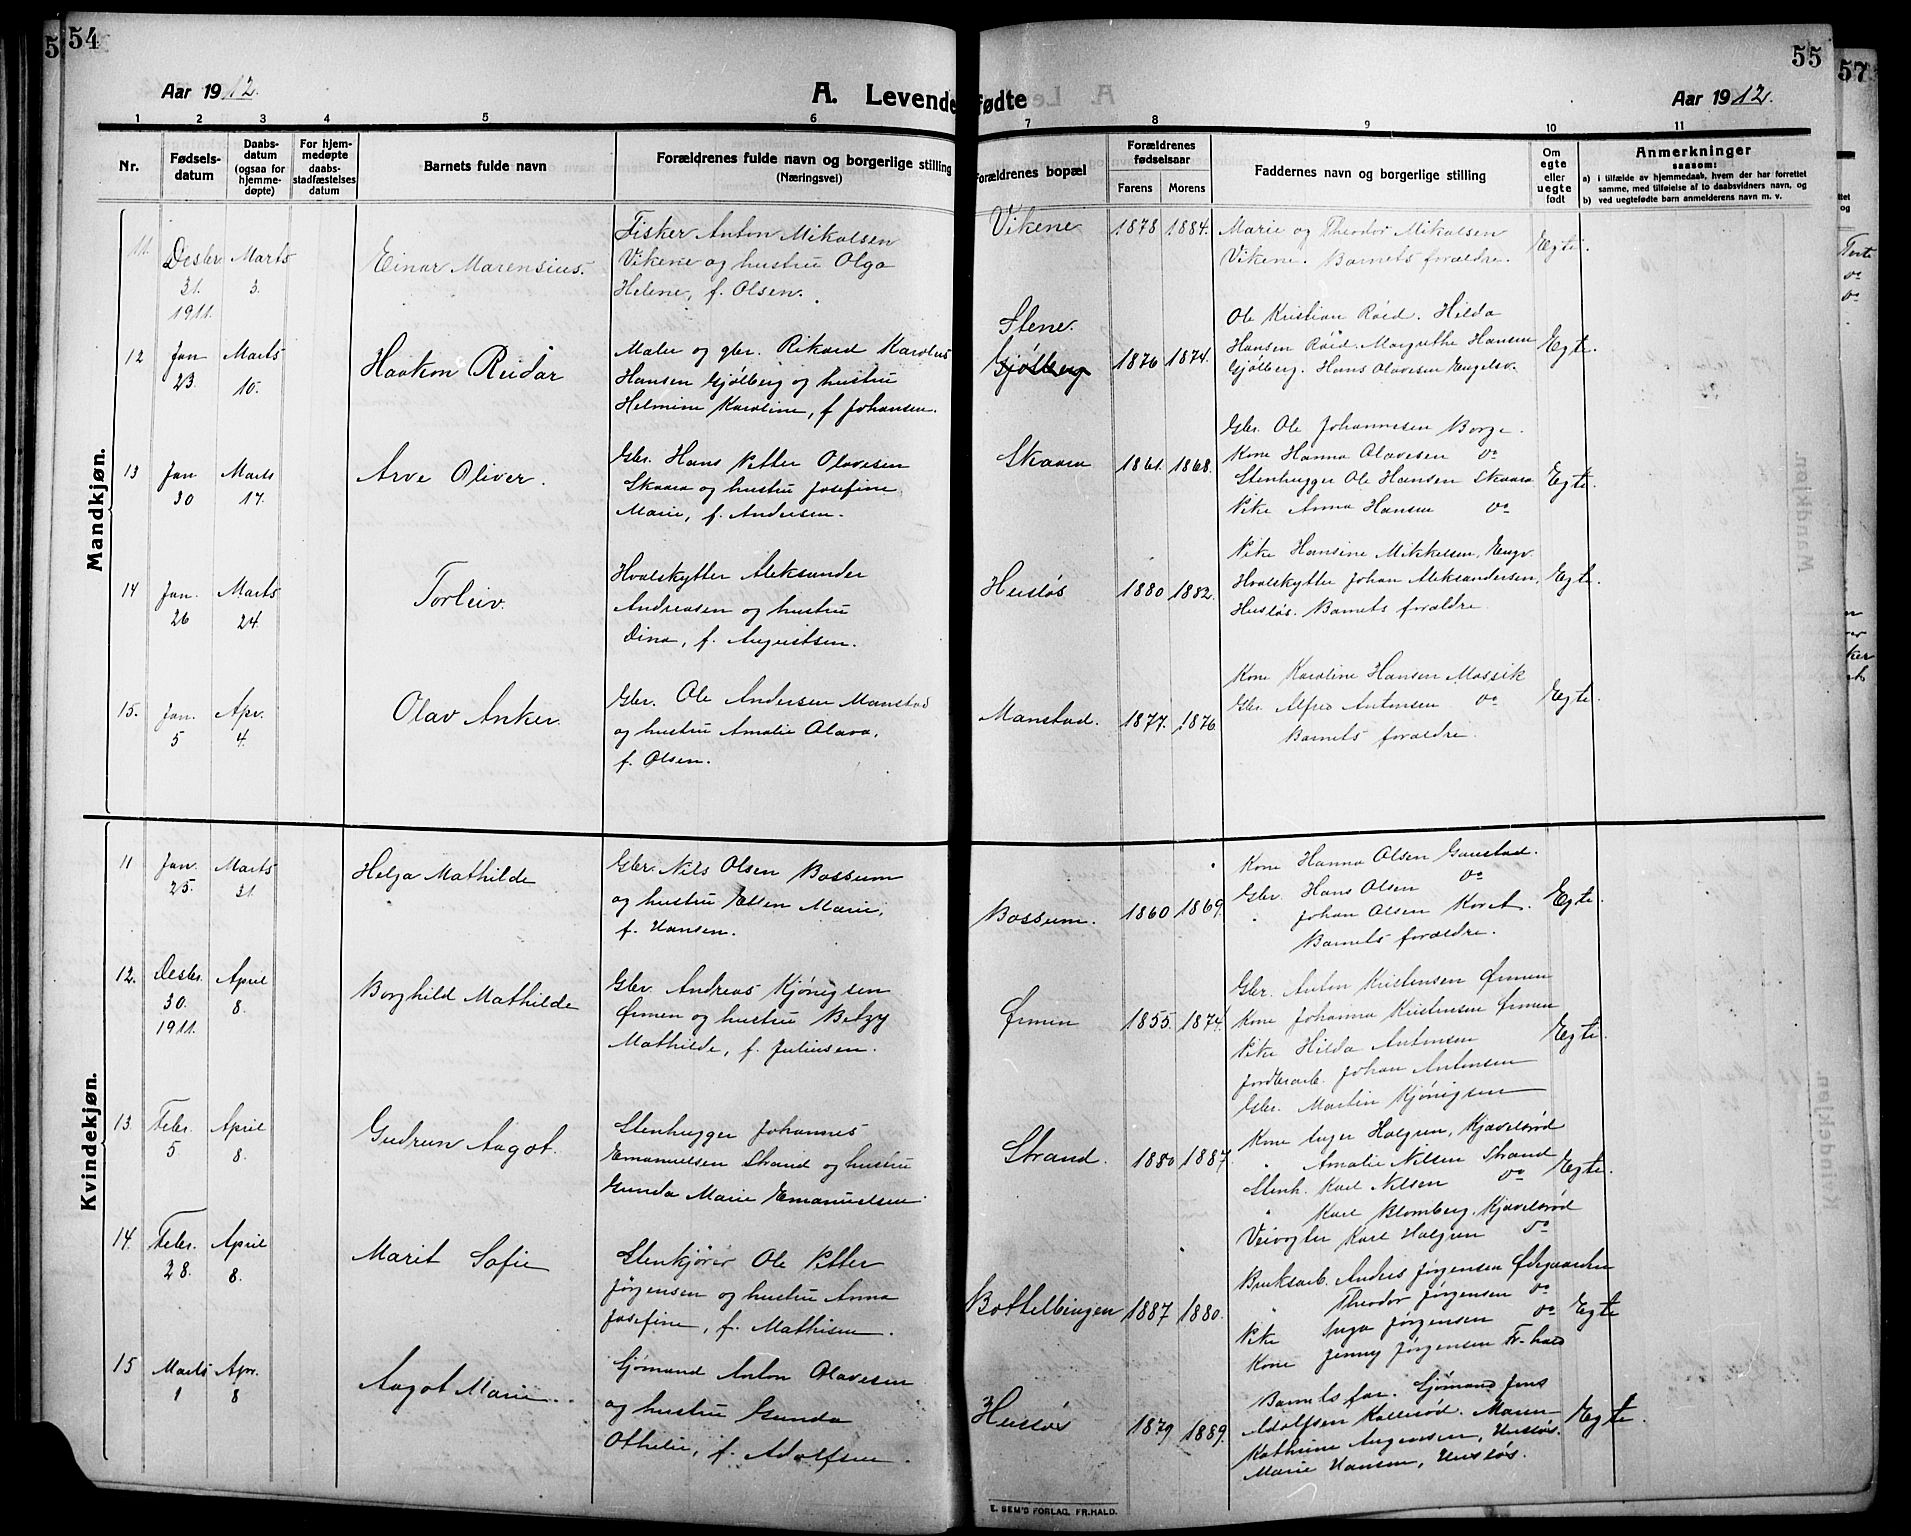 54
Aar 1912.
A. Levendefødte
55
Aar 1912.
57
1 2 3 4 5 6 7 8 9 10 11
Nr.
Fødselsdatum
Daabsdatum (ogsaa for hjemmedøpte)
For hjemmedøpte daabsstadfæstelses datum
Barnets fulde navn
Forældrenes fulde navn og borgerlige stilling
(Næringsvei)
Forældrenes bopæl
Forældrenes fødselsaar
Farens Morens
Faddernes navn og borgerlige stilling
Om egte eller uegte født
Anmerkninger
saasom:
a) i tilfælde av hjemmedaab, hvem der har forrettet
samme, med tilføielse af to daabsvidners navn, og
b) ved uegtefødte barn anmelderens navn m. v.
Mandkjøn.
11. Desbr 31. 1911. Marts 3.
Einar Marensius.
Fisker Anton Mikalsen
Vikene og hustru Olga
Helene, f. Olsen.
Vikene 1878 1884.
Marie og Theodor Mikalsen
Vikene. Barnets forældre.
Egte.
12 Jan 23. Marts 10.
Haakon Reidar
Maler og gbr. Rikard Karolius
Hansen Gjølberg og hustru
Helmine Karoline, f. Johansen.
Stene.
Gjølberg 1876 1874.
Ole Kristian Röed. Hilda
Hansen Röed. Margrethe Hansen
Gjølberg. Hans Olavesen Engelsv.
Egte.
13 Jan 30 Marts 17.
Arve Oliver.
Gbr. Hans Petter Olavesen
Skaara og hustru Josefine
Marie, f. Andersen.
Skaara 1861. 1868.
Gbr. Ole Johannesen Borge.
Kone Hanna Olavesen do
Stenhugger Ole Hansen Skaara
Pike Anna Hansen do
Egte.
14 Jan. 26 Marts 24.
Torleiv.
Hvalskytter Aleksander
Andreasen og hustru
Dina, f. Augustsen.
Husløs 1880 1882.
Pike Hansine Mikkelsen, Engv.
Hvalskytte Johan Aleksandersen,
Husløs. Barnets forældre.
Egte.
15. Jan. 5 Apr. 4.
Olav Anker.
Gbr. Ole Andersen Manstad
og hustru Amalie Olava,
f. Olsen.
Manstad. 1877. 1876.
Kone Karoline Hansen Mossik
Gbr Alfred Antonsen do
Barnets forældre.
Egte.
Kvindekjøn.
11 Jan. 25. Marts 31.
Helga Mathilde
Gbr. Nils Olsen Bossum
og hustru Ellen Marie,
f. Hansen.
Bossum. 1860 1869.
Kone Hanna Olsen Gaustad.
Gbr. Hans Olsen do
" Johan Olsen Koret.
Barnets forældre.
Egte.
12. Desbr. 30. 1911. April 8.
Borghild Mathilde
Gbr. Andreas Kjønigsen
Ørmen og hustru Betzy
Mathilde, f. Juliusen.
Ørmen 1855. 1874.
Gbr. Anton Kristensen Ørmen
Kone Johanna Kristensen Ørmen
Pike Hilda Antonsen
Jordbarb. Johan Antonsen
Gbr. Martin Kjønigsen
Egte.
13. Febr. 5 April 8.
Gudrun Aagot.
Stenhugger Johannes
Emanuelsen Strand og hustru
Gunda Marie Emanuelsen.
Strand. 1880 1887.
Kone Inger Halgren, Kjævelsrød
" Amalie Nilsen Strand
Stenh. Karl Nilsen do
" Karl Blomberg, Kjævelsrød
Veivogter Karl Halgren do
Egte.
14. Febr. 28. April 8.
Marit Sofie
Stenkjører Ole Petter
Jørgensen og hustru Anna
Josefine, f. Mathisen.
Bottelbingen 1887 1880.
Bruksarb. Anders Jørgensen Ødegaarden
" Theodor Jørgensen do
Pike Inga Jørgensen do
Kone Jenny Jørgensen Fr.hald
Egte
15 Marts 1 Apr. 8
Aagot Marie
Sjømand Anton Olavesen
og hustru Gunda
Othelie, f. Adolfsen.
Husløs 1879 1889.
Barnets far. Sjømand Jens
Adolfsen Kallerød. Maren
Kathrine Augensen, Husløs.
Marie Hansen, Husløs.
Egte.
E. SEM'S FORLAG, FR.HALD.